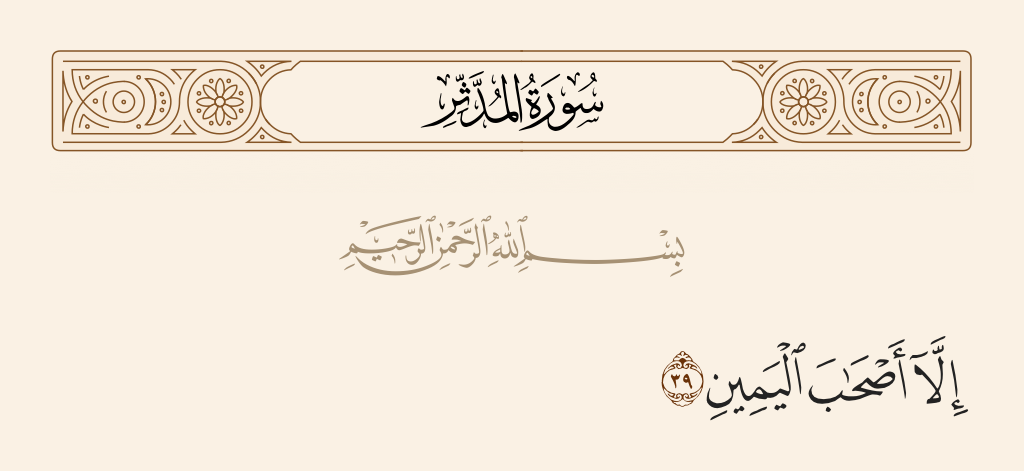 سُورَةُ المُدَّثِّرِ
بِسْمِ ٱللَّهِ ٱلرَّحْمَٰنِ ٱلرَّحِيمِ
إِلَّآ أَصْحَٰبَ ٱلْيَمِينِ ٣٩